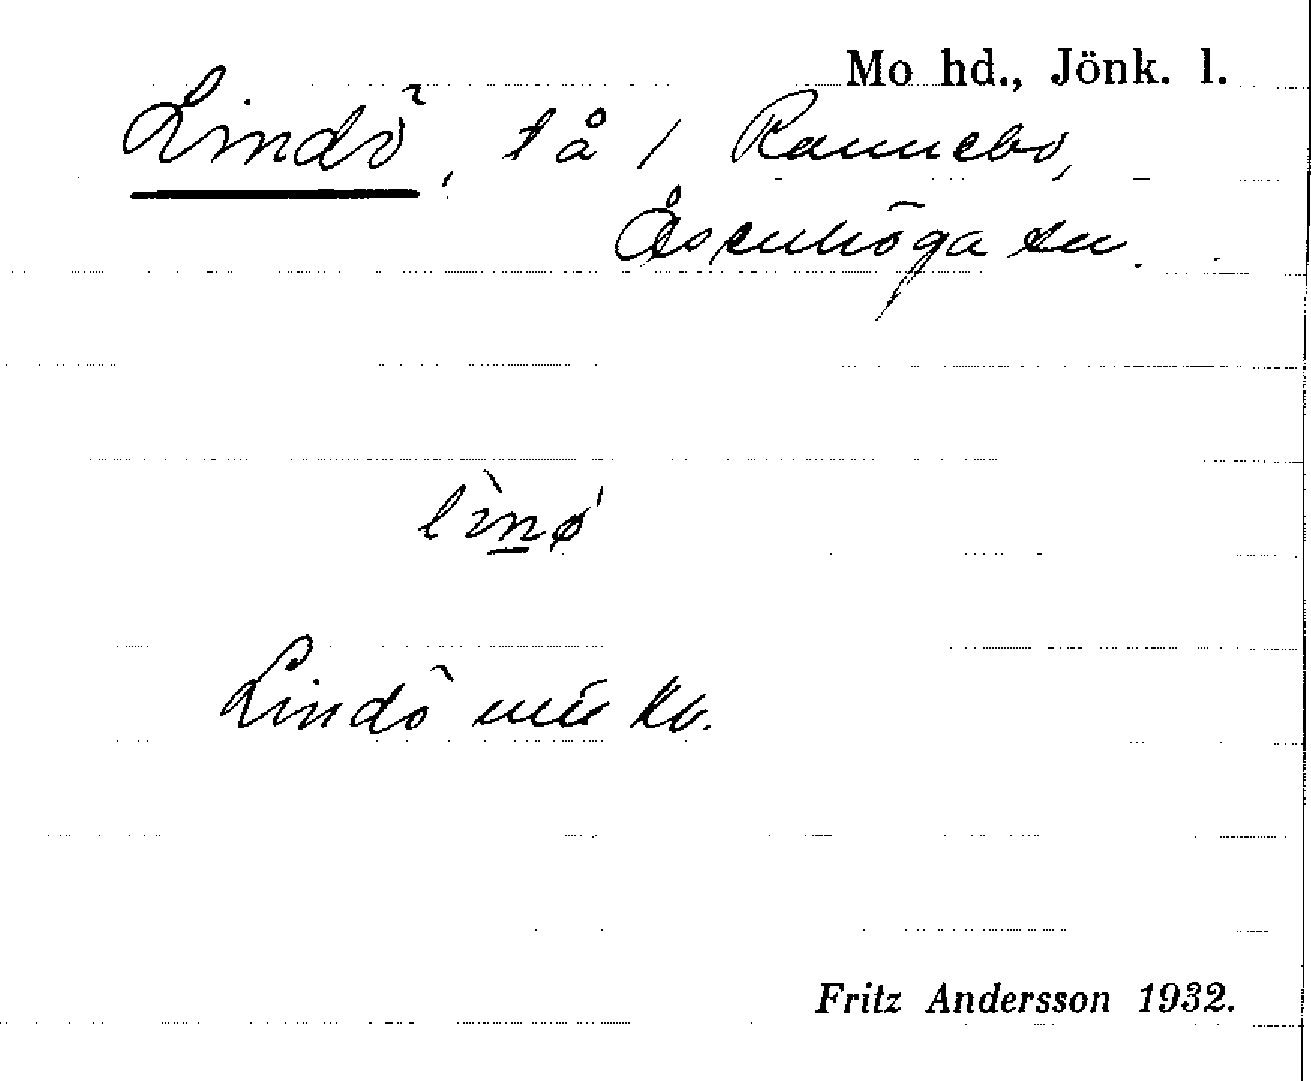 Mo hd., Jönk. l.
Lindö, tå i Rannebo,
Åsenhöga sn.
lìnø̀
Lindö
Fritz Andersson 1932.